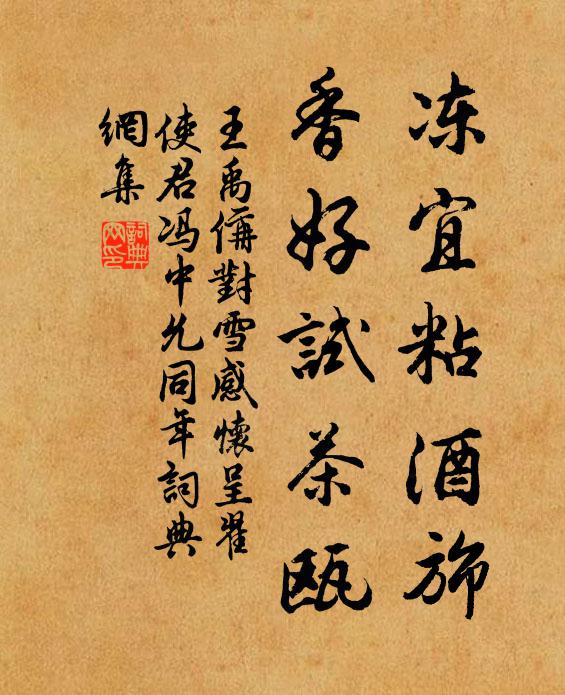 冻宜粘酒旆
香好試茶瓯
王禹偁對雪感懷呈翟
使君冯中允同年詞典
網集
詞典
网印